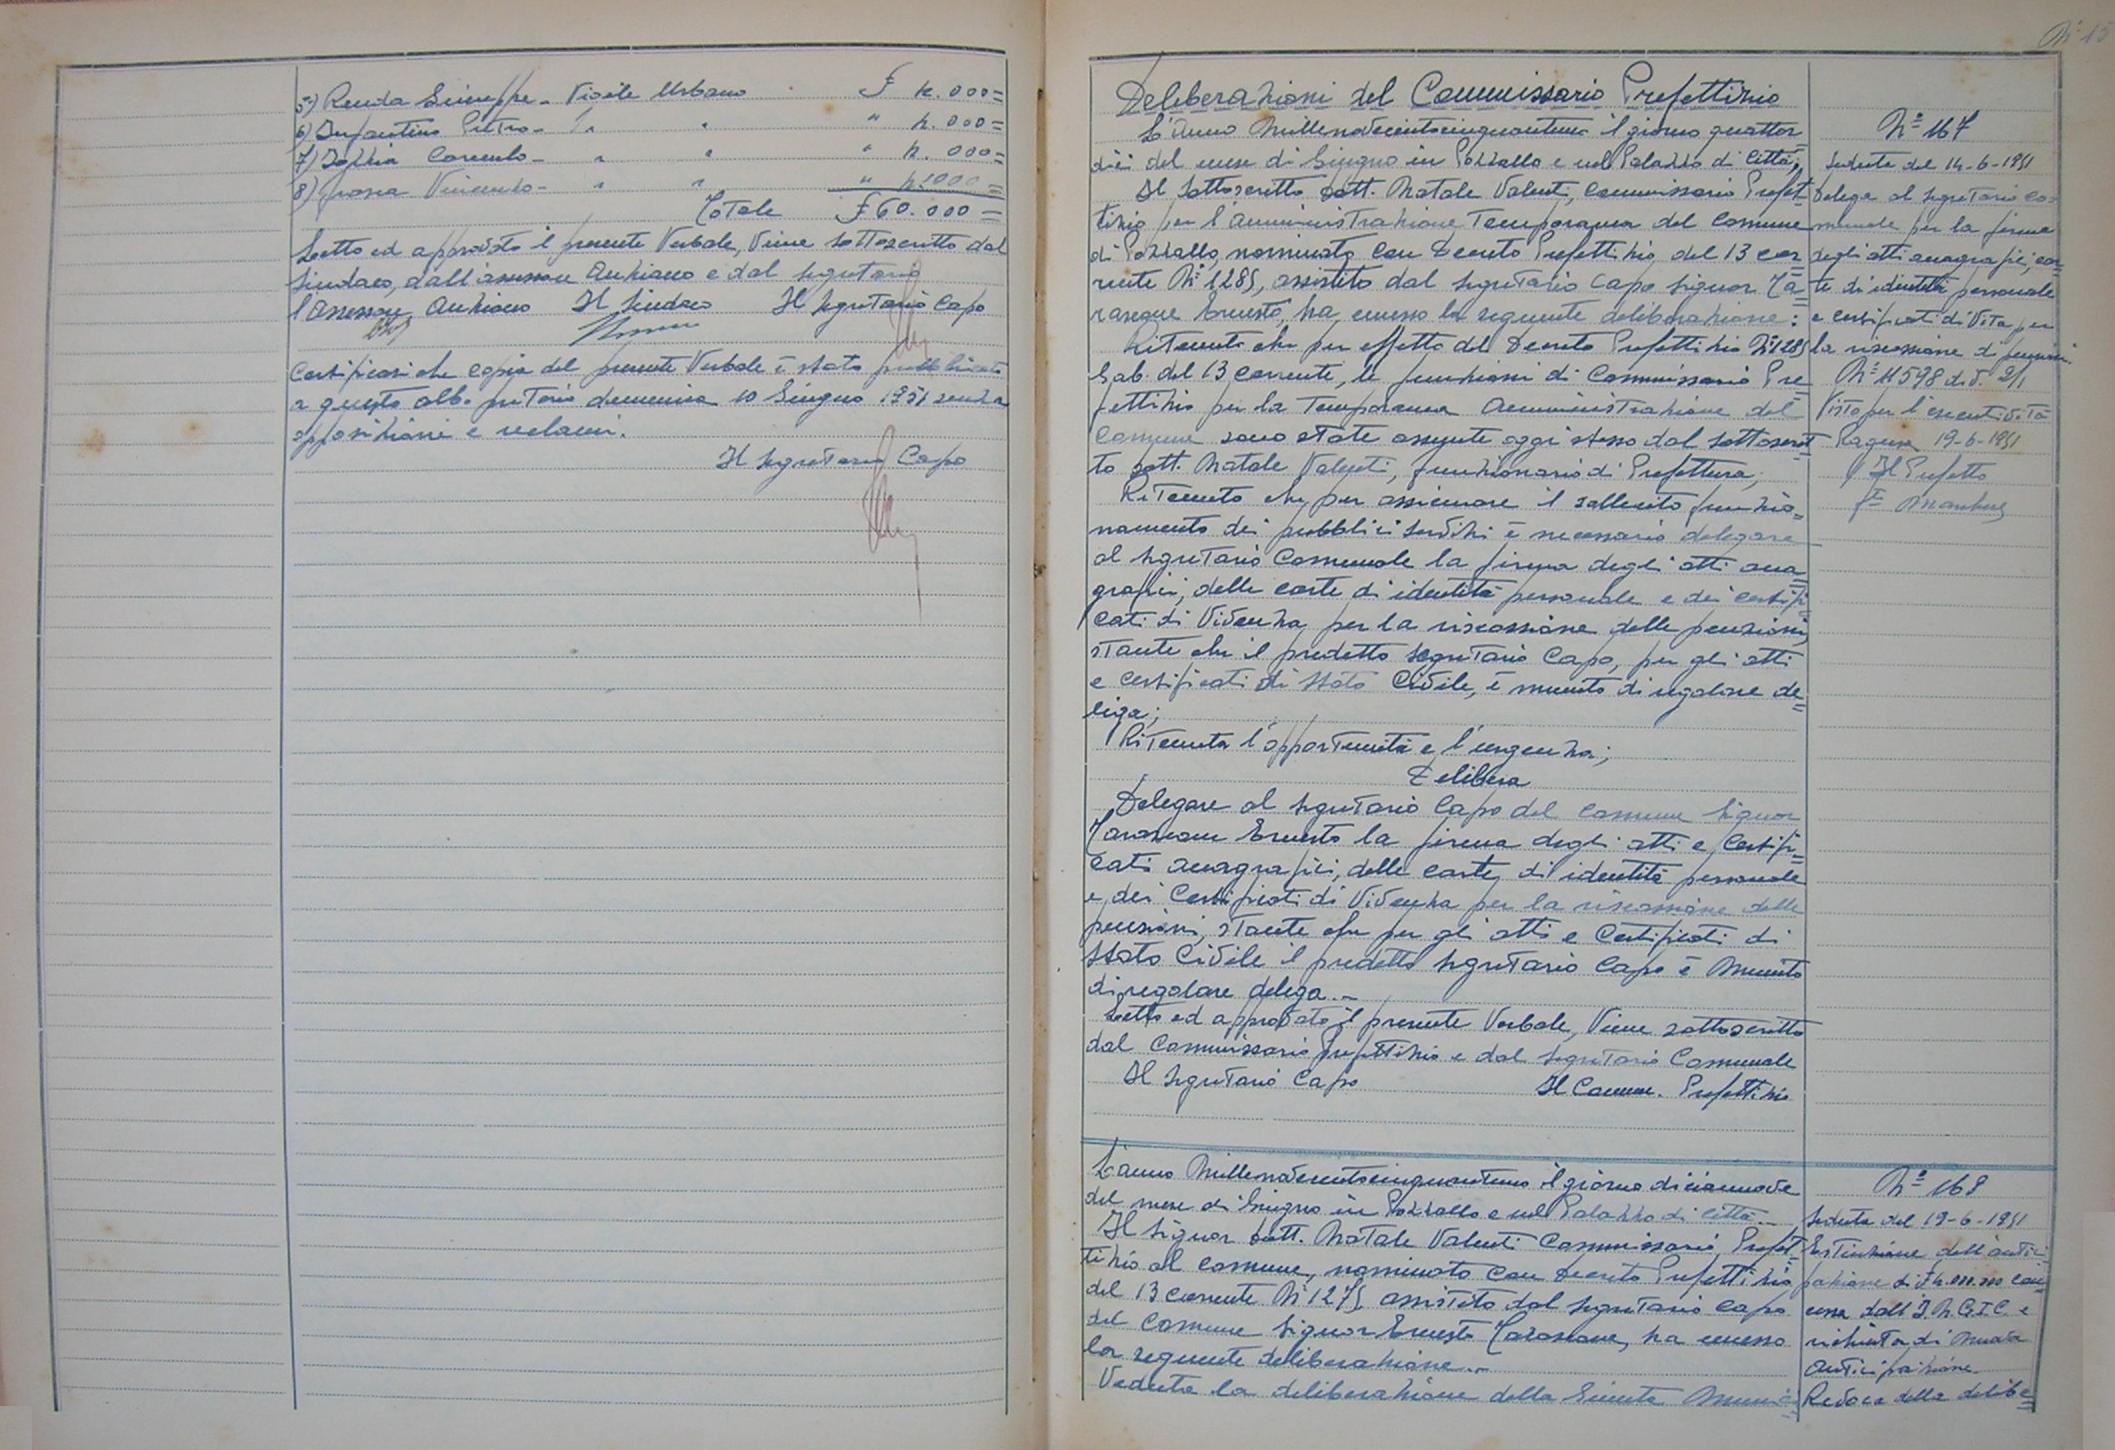 5) Renda Giuseppe - Vigile Urbano £ 12.000=
6) Infantino Pietro - " " " 12.000=
7) Carmelo - " " " 12.000=
8) Vincenzo - " " " 12.000=
Totale £ 60.000=
Letto ed approvato il presente Verbale, Viene sottoscritto dal
Sindaco, dall'assessore Anziano e dal segretario
L'Assessore Anziano Il Sindaco Il Segretario Capo
Certificasi che copia del presente Verbale è stato pubblicato
a questo albo pretorio domenica 10 Giugno 1951 senza
opposizioni e reclami.
Il Segretario Capo
Deliberazioni del Commissario Prefettizio
L'Anno Millenovecentocinquantuno il giorno quattor
dici del mese di Giugno in Pozzallo e nel Palazzo di Città,
Il sottoscritto Dott. Natale Valenti, Commissario Prefet=
tizio per l'Amministrazione Temporanea del Comune
di Pozzallo, nominato con Decreto Prefettizio del 13 cor=
rente N° 1285, assistito dal Segretario Capo Signor Ta=
rascone Ernesto, ha emesso la seguente deliberazione:
Ritenuto che per effetto del Decreto Prefettizio N° 1285
Gab. del 13 corrente, le funzioni di Commissario Pre
fettizio per la Temporanea Amministrazione del
Comune sono state assunte oggi stesso dal sottoscrit
to Dott. Natale Valenti, funzionario di Prefettura;
Ritenuto che per assicurare il sollecito funzio=
namento dei pubblici servizi è necessario delegare
al Segretario Comunale la firma degli atti ana=
grafici, delle carte di identità personale e dei certifi=
cati di Vivenza per la riscossione delle pensioni,
stante che il predetto Segretario Capo, per gli atti
e certificati di Stato Civile, è munito di regolare de=
lega;
Ritenuta l'opportunità e l'urgenza;
Delibera
Delegare al Segretario Capo del Comune Signor
Tarascone Ernesto la firma degli atti e certifi=
cati anagrafici, delle carte di identità personale
e dei Certificati di Vivenza per la riscossione delle
pensioni, stante che per gli atti e Certificati di
Stato Civile il predetto Segretario Capo è Munito
di regolare delega.-
Letto ed approvato il presente Verbale, Viene sottoscritto
dal Commissario Prefettizio e dal Segretario Comunale
Il Segretario Capo Il Comm. Prefettizio
N° 167
Seduta del 14-6-1951
Delega al Segretario Co=
munale per la firma
degli atti anagrafici, car=
te di identità personale
e certificati di Vita per
la riscossione di pensioni.
N° 11598 div. 2/1
Visto per l'esecutività
Ragusa 19-6-1951
Il Prefetto
L'anno Millenovecentocinquantuno il giorno diciannove
del mese di Giugno in Pozzallo e nel Palazzo di Città.-
Il Signor Dott. Natale Valenti Commissario Prefet=
tizio al Comune, nominato con Decreto Prefettizio
del 13 corrente N° 1275 assistito dal Segretario Capo
del Comune Signor Ernesto Tarascone, ha emesso
la seguente deliberazione.-
Veduta la deliberazione della Giunta Munici=
N° 168
Seduta del 19-6-1951
Estinzione dell'antici=
pazione di con=
cessa dall'I.N.G.I.C. e
richiesta di nuova
anticipazione.
Revoca della delibe=